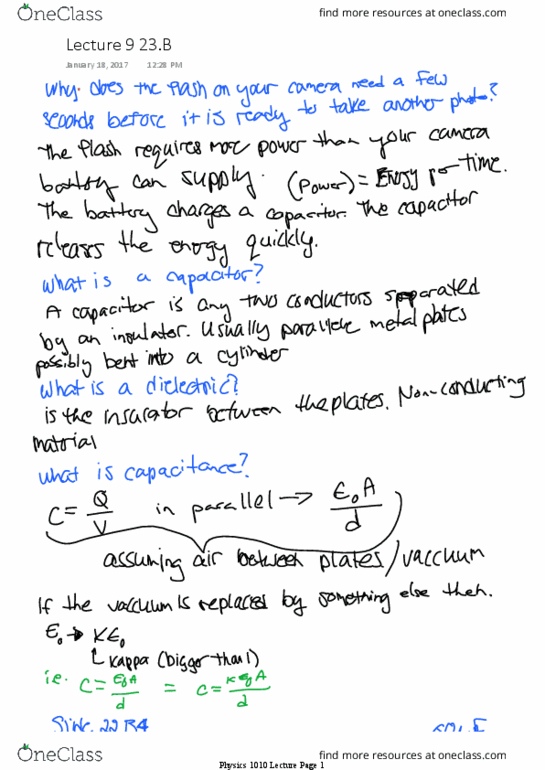 OneClass
find more resources at oneclass.com
Lecture 9 23.B
January 18, 2017 12:28 PM
why does the flash on your camera need a few
seconds before it is ready to take another photo?
The flash requires more power than your camera
battery can supply. (Power) = Energy per time.
The battery charges a capacitor. The capacitor
releases the energy quickly.
what is a capacitor?
A capacitor is any two conductors separated
by an insulator. Usually parallel metal plates
possibly bent into a cylinder
what is a dielectric?
is the insulator between the plates. Non-conducting
material
what is capacitance?
C = Q/V in parallel → ε₀A/d
assuming air between plates/vaccuum
If the vaccuum is replaced by something else then.
ε₀ → Kε₀
Kappa (bigger than 1)
i.e. C = ε₀A/d = C = κε₀A/d
22
OneClass
find more resources at oneclass.com
Physics 1010 Lecture Page 1